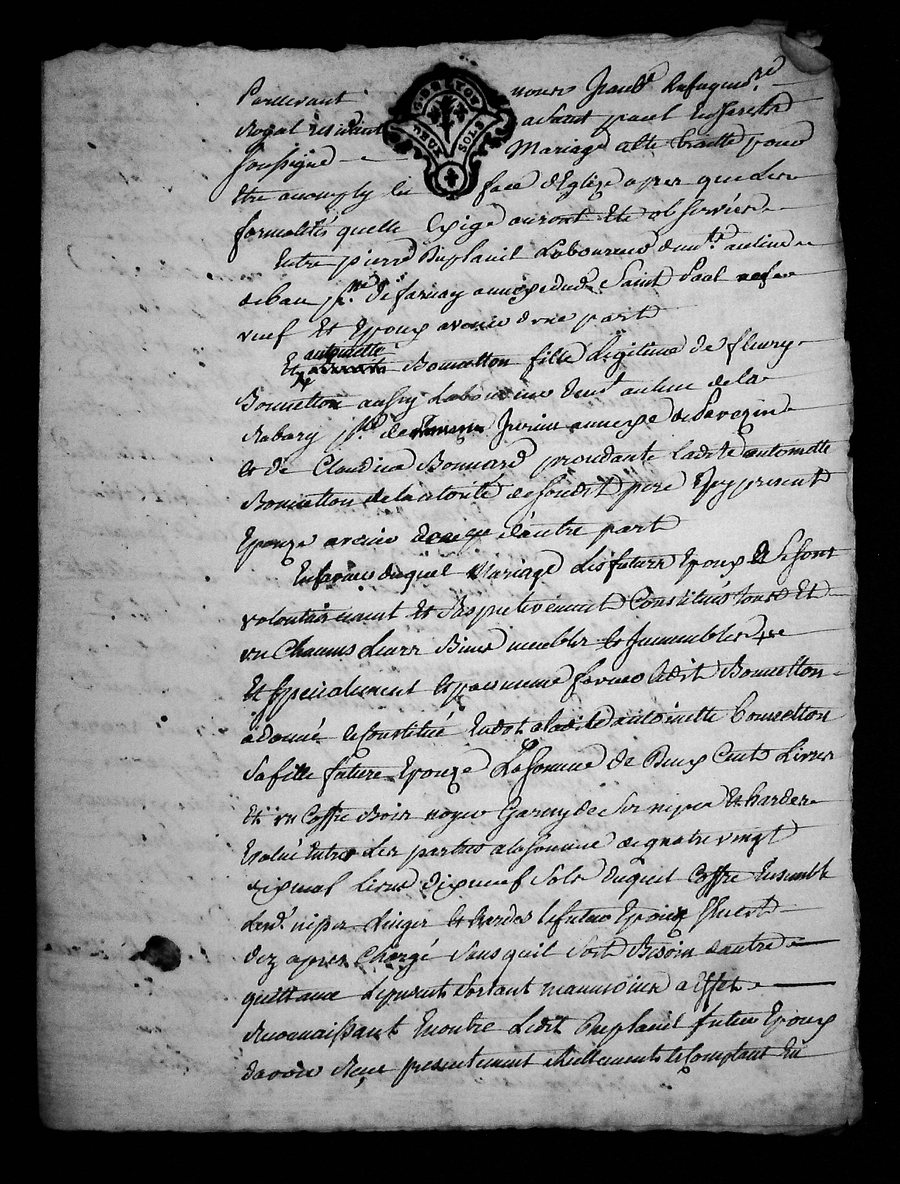 Pardevant nous Jean
Royal résidant a Saint paul En Jarets
Soussigné Mariage a été traitté pour
Etre accomply En face d'Eglize apres que Les
formalités quelle Exige auront Eté observées
Entre pierre Duplanil Laboureur demt. au lieu
de ban psse. de farnay annexe dud. Saint Paul
veuf Et Epoux avenir d'une part
Et antoinette Bonnetton fille Légitime de fleury
Bonnetton aussy Laboureur demt. au lieu de la
Rabary psse. de Jurieu annexe de Pavezin
Et de Claudine Bonnard procedante Ladite antoinette
Bonnetton de l'autorité de sondit pere Icy present
Epouze avenir d'autre part
En faveur duquel Mariage Les futurs Epoux Se sont
volontairement Et Respectivement Constitués tous Et
un Chacuns Leurs Biens meubles Et Immeubles
Et specialement Et par meme faveur Ledit Bonnetton
a donné Et Constitué En dot a ladite antoinette Bonnetton
Sa fille future Epouze La Somme de Deux Cents Livres
Et un Coffre Bois noyer Garny de Ses nipes Et hardes
Evalué Entre Les parties a la Somme de quatre vingt
dix neuf Livres dix neuf Sols duquel Coffre Ensemble
Lesd. nipes Linges Et hardes le futur Epoux S'Est
dez apres Chargé Sans quil Soit Besoin d'autre
quittance Les presentes Sortant neanmoins a Effet
Reconnaissant En outre Ledit Duplanil futur Epoux
d'avoir Reçu presentement Reellement Et Comptant En